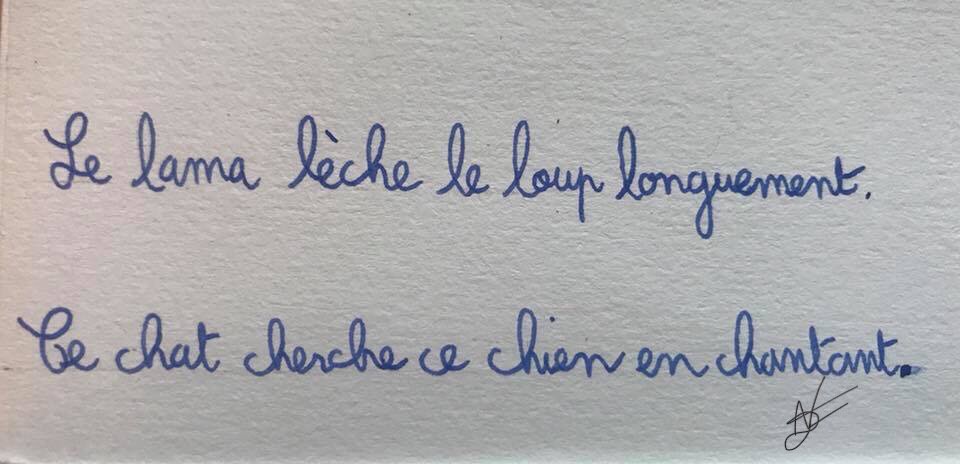 Le lama lèche le loup longuement.
Ce chat cherche ce chien en chantant.